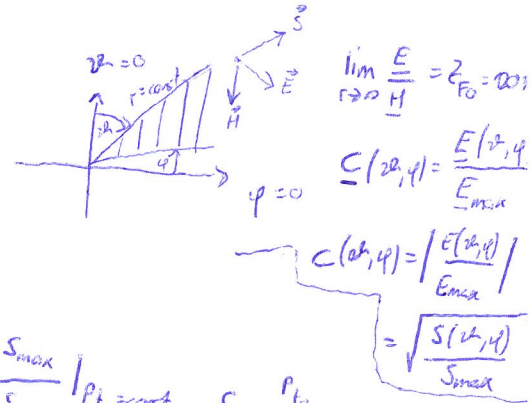 ϑ = 0
r = const
ϑ
φ
φ = 0
S⃗
E⃗
H⃗
lim r→∞ E/H = Z_F0 =
C(ϑ,φ) = E(ϑ,φ / E_max
C(ϑ,φ) = | E(ϑ,φ) / E_max |
= √( S(ϑ,φ) / S_max )
S_max / S | P_t = const